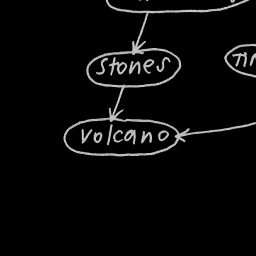 stones
volcano